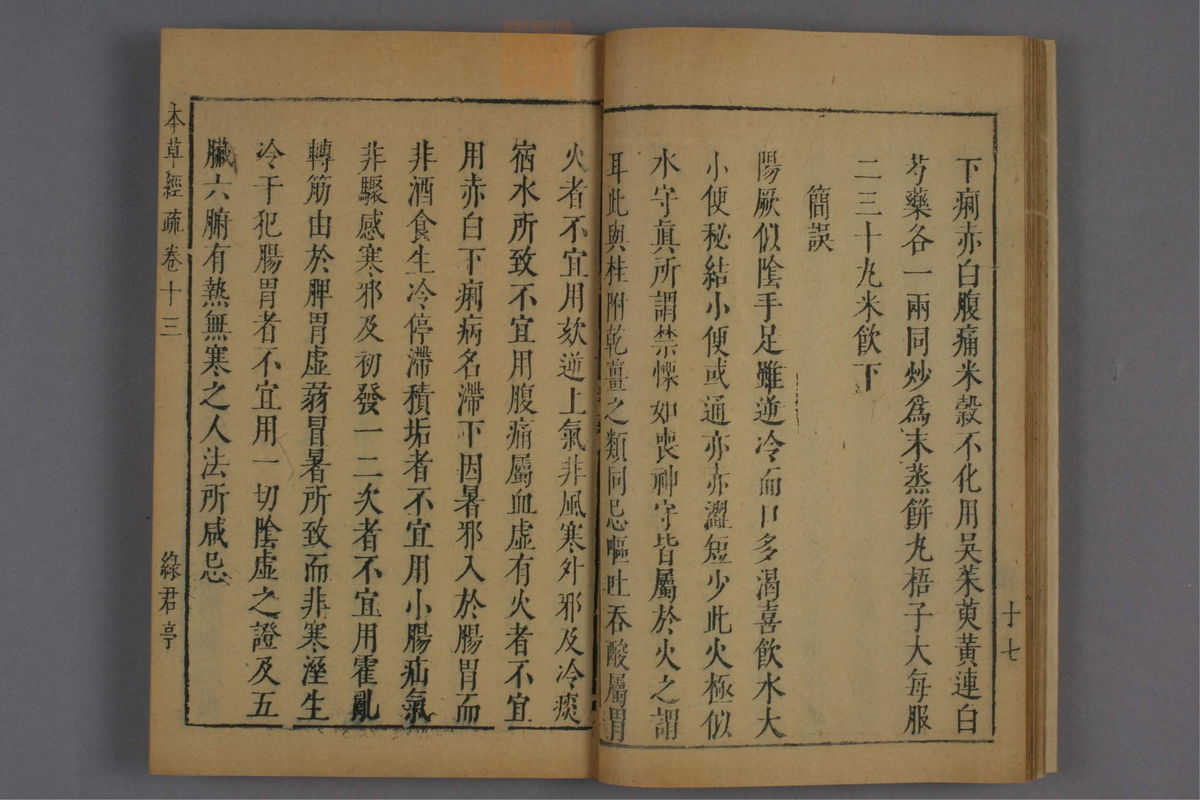 下痢赤白腹痛米穀不化用吳茱萸黃連白
芍藥各一兩同炒為末蒸餅丸梧子大每服
二三十丸米飲下
簡誤
陽厥似陰手足雖逆冷而口多渴喜飲水大
小便秘結小便或通亦赤澀短少此火極似
水守真所謂禁慄如喪神守皆屬於火之謂
耳此與桂附乾薑之類同忌嘔吐吞酸屬胃
十七
火者不宜用欬逆上氣非風寒外邪及冷痰
宿水所致不宜用腹痛屬血虛有火者不宜
用赤白下痢病名滯下因暑邪入於腸胃而
非酒食生冷停滯積垢者不宜用小腸疝氣
非驟感寒邪及初發一二次者不宜用霍亂
轉筋由於脾胃虛弱冒暑所致而非寒溼生
冷干犯腸胃者不宜用一切陰虛之證及五
臟六腑有熱無寒之人法所咸忌
本草經疏卷十三
綠君亭